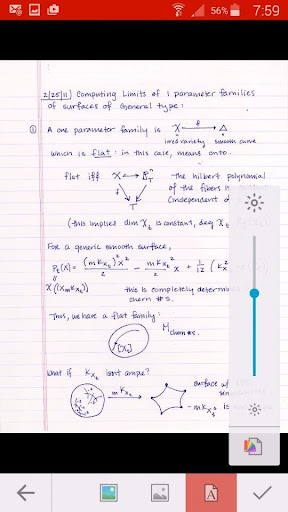 56% 7:59
2/25/11 Computing Limits of 1 parameter families
of surfaces of General type:
① A one parameter family is X —f→ Δ
irred variety smooth curve
which is flat: in this case, means onto.
flat iff X ↪ ℙⁿ_T - the hilbert polynomial
of the fibers is
T (independent of
(this implies dim X_t is constant, deg X_t
For a generic smooth surface,
P_t(X) = (mK_{X_t})² x² / 2 - mK²_{X_t} / 2 x + 1/12 (K²_X
χ(X_{mK_{X_t}}) this is completely
chern #s.
Thus, we have a flat family:
[X_t] M_{chern #s.}
What if K_{X_t} isn't ample?
mK_{X_t} surface
mK_{X_t} is
A